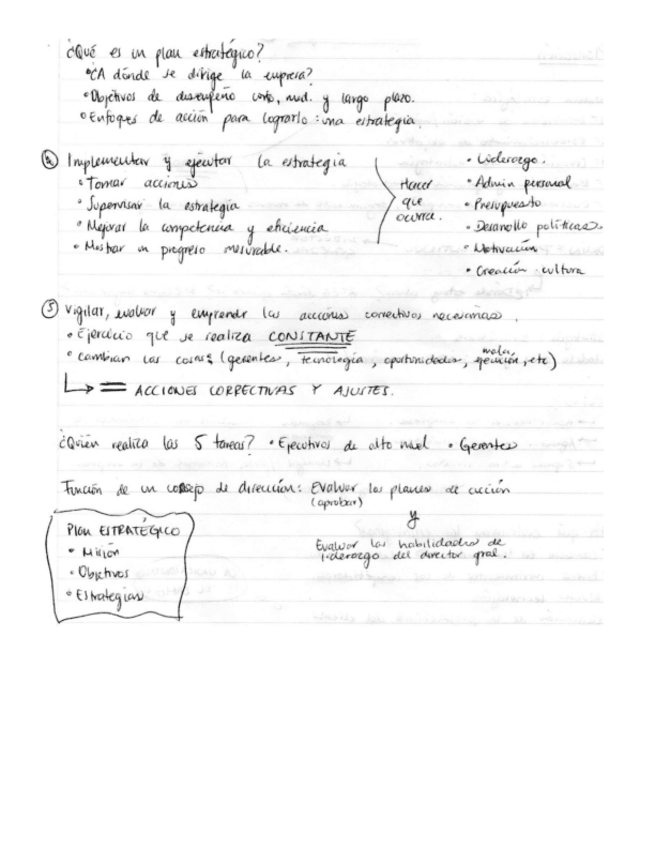 ¿Qué es un plan estratégico?
• ¿A dónde se dirige la empresa?
• Objetivos de desempeño corto, med. y largo plazo.
• Enfoques de acción para lograrlo: una estrategia.
④ Implementar y ejecutar la estrategia
• Tomar acciones
• Supervisar la estrategia
• Mejorar la competencia y eficiencia
• Mostrar un progreso mesurable.
Hacer
que
ocurra.
• Liderazgo.
• Admin personal
• Presupuesto
• Desarrollo políticas
• Motivación
• Creación cultura
⑤ Vigilar, evaluar y emprender las acciones correctivas necesarias.
• Ejercicio que se realiza CONSTANTE
• Cambian las cosas: (gerentes, tecnología, oportunidades, mala ejecución, etc)
↳ = ACCIONES CORRECTIVAS Y AJUSTES.
¿Quién realiza las 5 tareas? • Ejecutivos de alto nivel • Gerentes
Función de un consejo de dirección: Evaluar los planes de acción
(aprobar)
y
Evaluar las habilidades de
liderazgo del director gral.
PLAN ESTRATÉGICO
• Misión
• Objetivos
• Estrategias